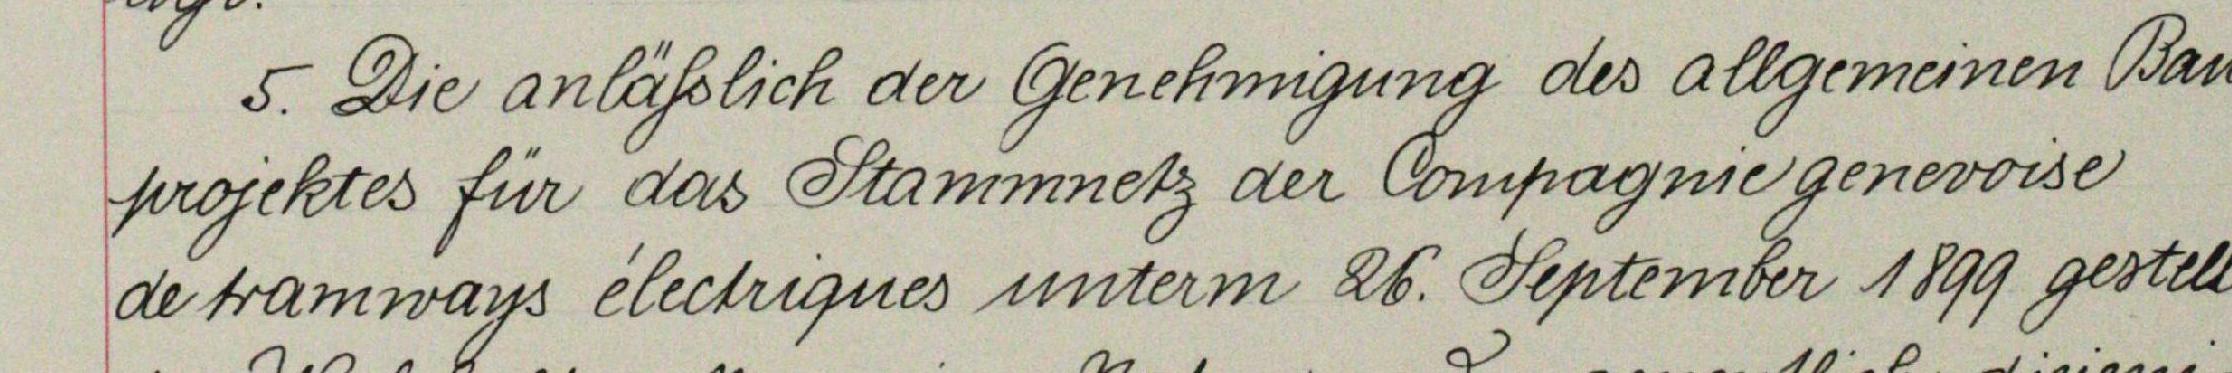 5. Die anläßlich der Genehmigung des allgemeinen Bau
projektes für das Stammnetz der Compagnie genevoise
de tramways électriques unterm 26. September 1899 gestell